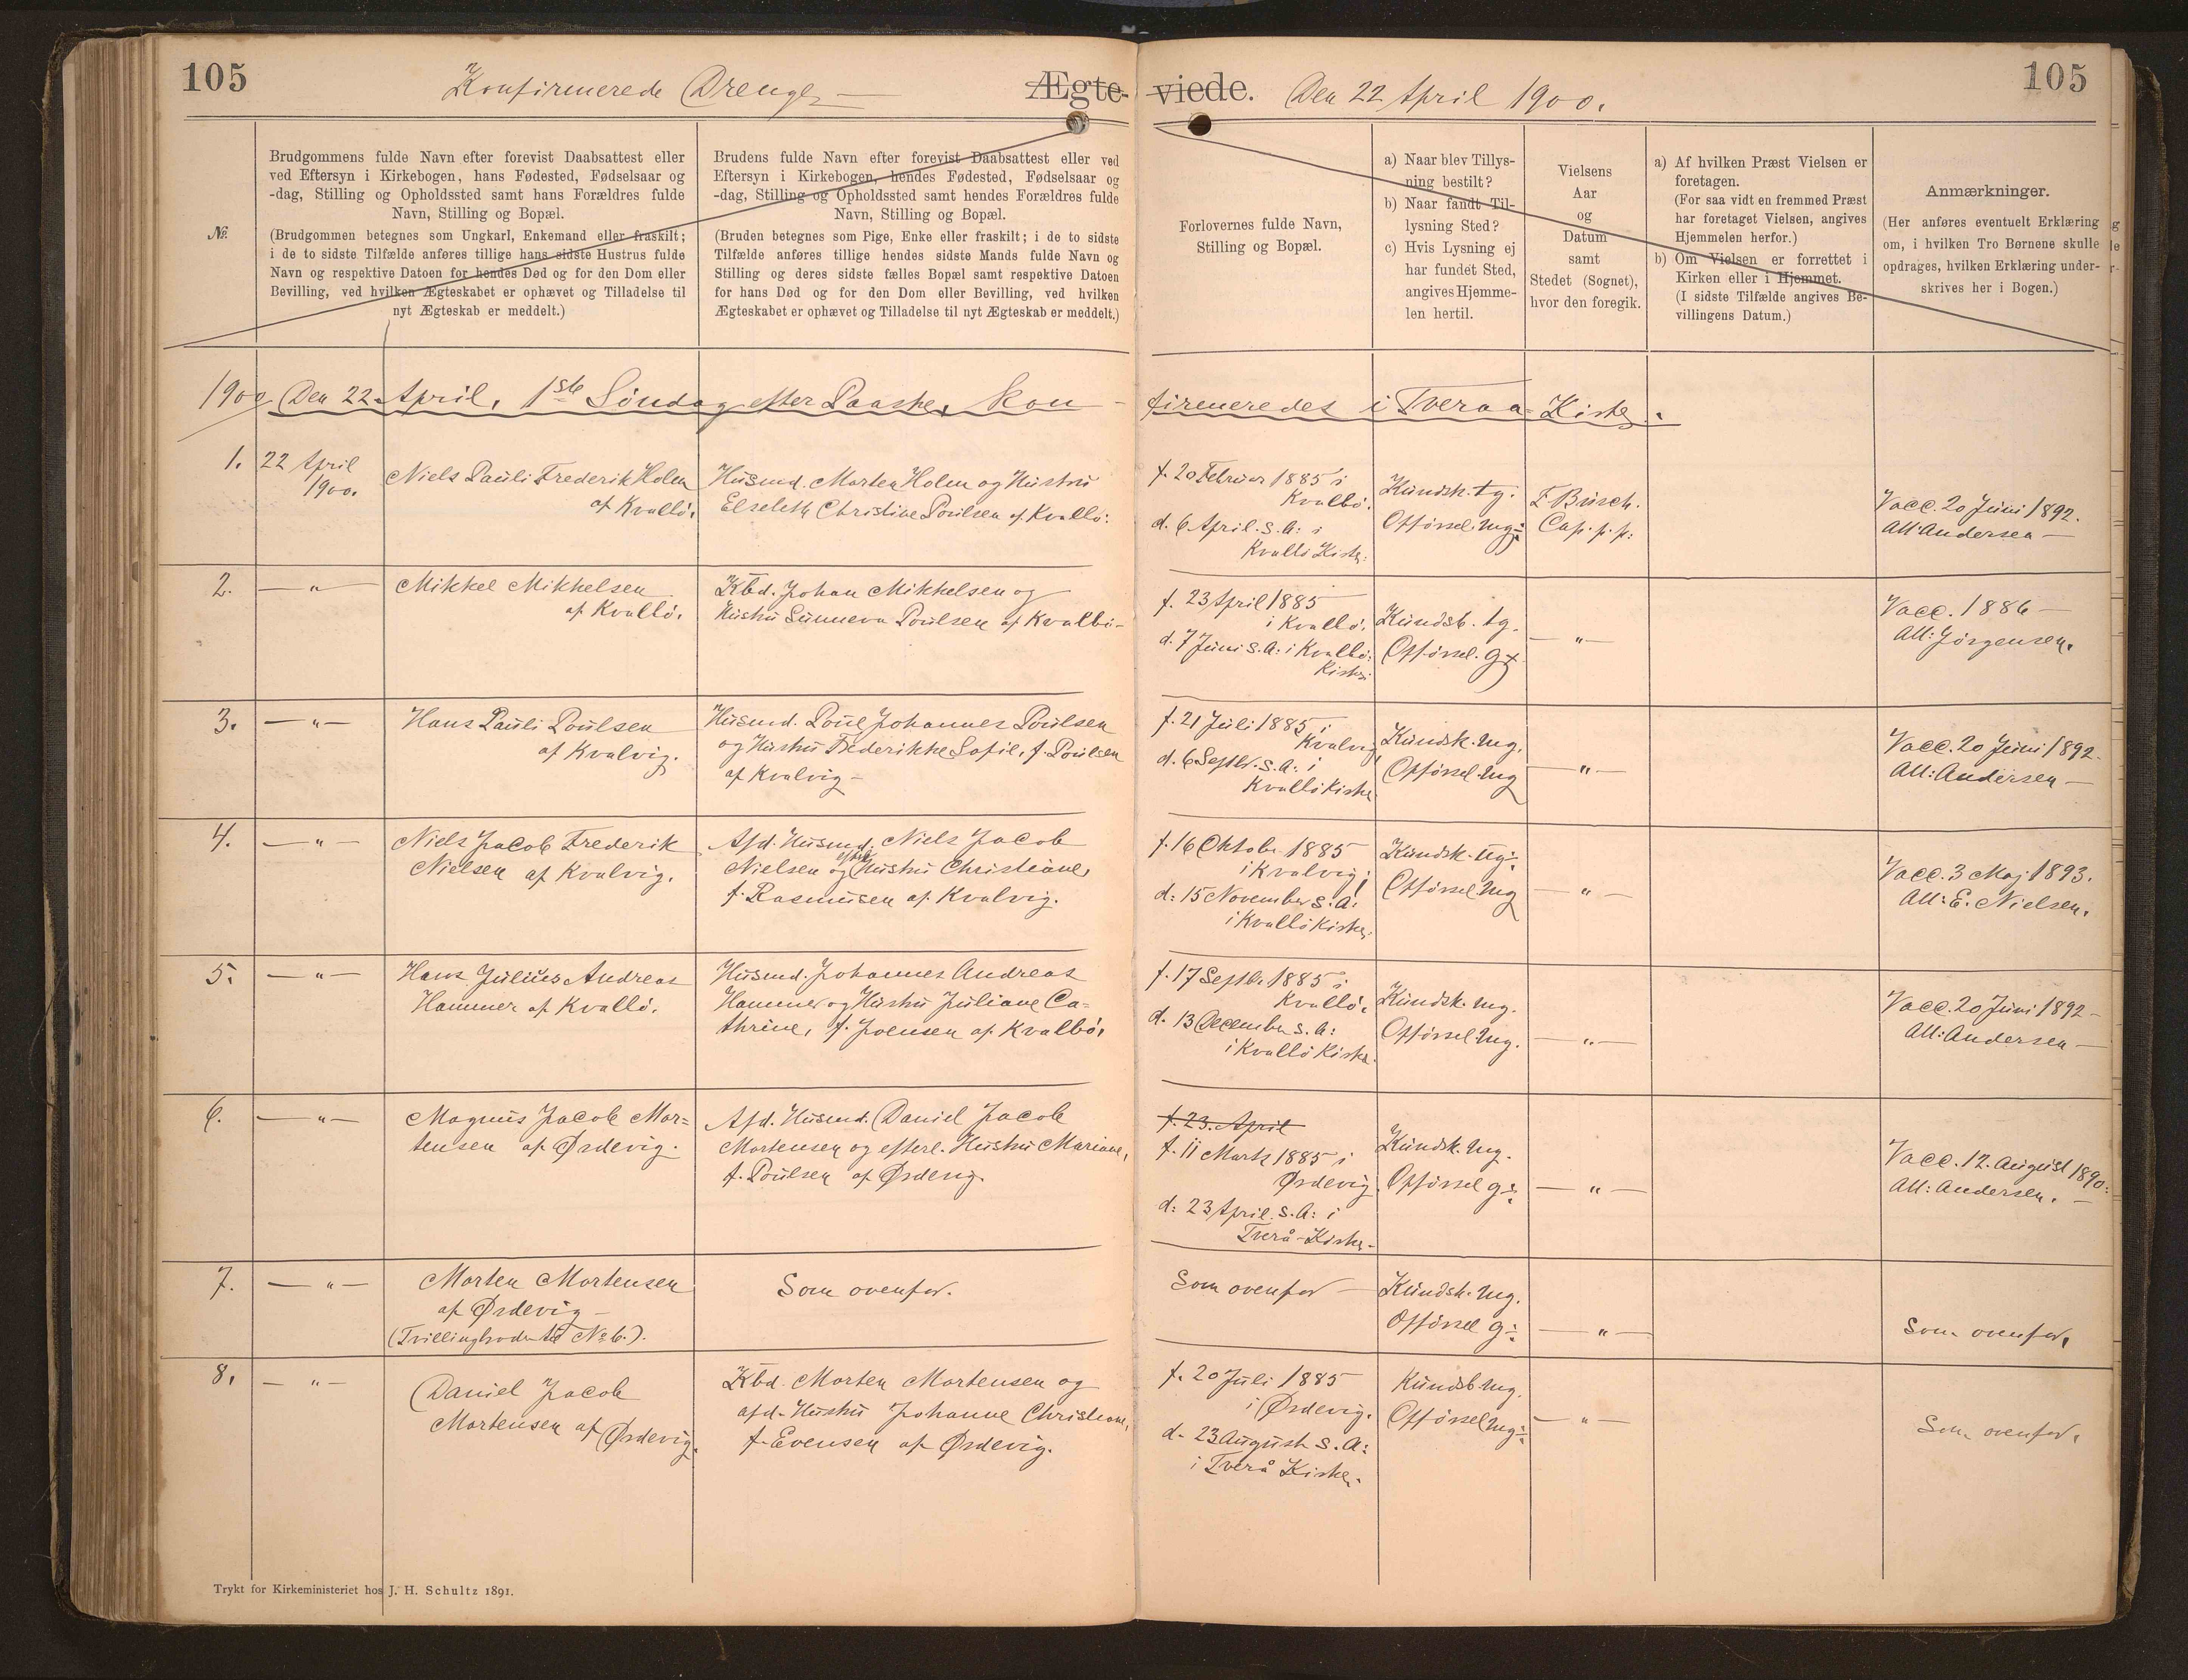 105
Konfirmerede Drenge —
Ægte-
viede.
Den 22 April 1900.
105
No.
Brudgommens fulde Navn efter forevist Daabsattest eller
ved Eftersyn i Kirkebogen, hans Fødested, Fødselsaar og
-dag, Stilling og Opholdssted samt hans Forældres fulde
Navn, Stilling og Bopæl.
(Brudgommen betegnes som Ungkarl, Enkemand eller fraskilt;
i de to sidste Tilfælde anføres tillige hans sidste Hustrus fulde
Navn og respektive Datoen for hendes Død og for den Dom eller
Bevilling, ved hvilken Ægteskabet er ophævet og Tilladelse til
nyt Ægteskab er meddelt.)
Brudens fulde Navn efter forevist Daabsattest eller ved
Eftersyn i Kirkebogen, hendes Fødested, Fødselsaar og
-dag, Stilling og Opholdssted samt hendes Forældres fulde
Navn, Stilling og Bopæl.
(Bruden betegnes som Pige, Enke eller fraskilt; i de to sidste
Tilfælde anføres tillige hendes sidste Mands fulde Navn og
Stilling og deres sidste fælles Bopæl samt respektive Datoen
for hans Død og for den Dom eller Bevilling, ved hvilken
Ægteskabet er ophævet og Tilladelse til nyt Ægteskab er meddelt.)
Forlovernes fulde Navn,
Stilling og Bopæl.
a) Naar blev Tillys-
ning bestilt?
b) Naar fandt Til-
lysning Sted?
c) Hvis Lysning ej
har fundet Sted,
angives Hjemme-
len hertil.
Vielsens
Aar
og
Datum
samt
Stedet (Sognet),
hvor den foregik.
a) Af hvilken Præst Vielsen er
foretagen.
(For saa vidt en fremmed Præst
har foretaget Vielsen, angives
Hjemmelen herfor.)
b) Om Vielsen er forrettet i
Kirken eller i Hjemmet.
(I sidste Tilfælde angives Be-
villingens Datum.)
Anmærkninger.
(Her anføres eventuelt Erklæring
om, i hvilken Tro Børnene skulle
opdrages, hvilken Erklæring under-
skrives her i Bogen.)
1900 Den 22 April, 1ste Söndag efter Paaske, kon-
firmeredes i Tveraa-Kirke:
1.
22 April
1900.
Niels Pauli Frederik Holm
af Kvalbö.
Husmd. Morten Holm og Hustru
Elsebeth Christine Poulsen af Kvalbö.
f. 20 Februar 1885 i
Kvalbö.
d. 6 April s. A: i
Kvalbö Kirke.
Kundsk. tg.
Opförsel. mg÷
F Busch.
Cap. p. p:
Vacc. 20 Juni 1892.
Att: Andersen —
2.
— " —
Mikkel Mikkelsen
af Kvalbö.
Kbd. Johan Mikkelsen og
Hustru Sunneva Poulsen af Kvalbö -
f. 23 April 1885
i Kvalbö.
d. 7 Juni s. A: i Kvalbö
Kirke
Kundsk. tg.
Opförsel. g+
— " —
Vacc. 1886 —
Att: Jörgensen.
3.
— " —
Hans Pauli Poulsen
af Kvalvig.
Husmd. Poul Johannes Poulsen
og Hustru Frederikke Sofie, f. Poulsen
af Kvalvig —
f. 21 Juli 1885 i
Kvalvig
d. 6 Septbr. s. A: i
Kvalbö Kirke
Kundsk. mg.
Opförsel. mg
— " —
Vacc. 20 Juni 1892.
Att: Andersen —
4.
— " —
Niels Jacob Frederik
Nielsen af Kvalvig.
Afd. Husmd. Niels Jacob
Nielsen og efterl. Hustru Christiane,
f. Rasmusen af Kvalvig.
f. 16 Oktobr 1885
i Kvalvig;
d: 15 November s. A:
i Kvalbö Kirke.
Kundsk. ug÷
Opförsel mg
— " —
Vacc. 3 Maj 1893.
Att: E. Nielsen.
5.
— " —
Hans Julius Andreas
Hammer af Kvalbö.
Husmd. Johannes Andreas
Hammer og Hustru Juliane Ca=
thrine, f. Joensen af Kvalbö.
f. 17 Septbr. 1885 i
Kvalbö.
d. 13 December s. A:
i Kvalbö Kirke.
Kundsk. mg.
Opförsel mg.
— " —
Vacc. 20 Juni 1892 —
Att: Andersen —
6.
— " —
Magnus Jacob Mor=
tensen af Ørdevig.
Afd. Husmd. Daniel Jacob
Mortensen og efterl. Hustru Mariane,
f. Poulsen af Ørdevig.
f. 23. April
f. 11 Marts 1885 i
Ørdevig.
d: 23 April. s. A: i
Tverå-Kirke -
Kundsk. mg.
Opförsel g÷
— " —
Vacc. 12. August 1890:
Att: Andersen. —
7.
— " —
Morten Mortensen
af Ørdevig —
(Tvillingbroder til No 6.).
Som ovenfor.
Som ovenfor —
Kundsk. mg.
Opförsel g÷
— " —
Som ovenfor.
8.
— " —
Daniel Jacob
Mortensen af Ørdevig.
Kbd. Morten Mortensen og
afd. Hustru Johanne Christiane,
f. Evensen af Ørdevig.
f. 20 Juli 1885
i Ørdevig.
d. 23 August s. A:
i Tverå Kirke.
Kundsk mg.
Opförsel mg÷
— " —
Som ovenfor.
Trykt for Kirkeministeriet hos J. H. Schultz 1891.